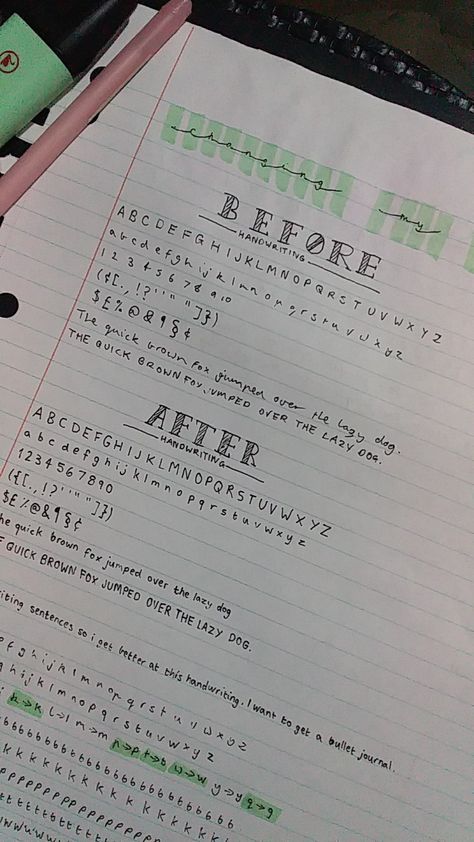 changing my
BEFORE
HANDWRITING
A B C D E F G H I J K L M N O P Q R S T U V W X Y Z
a b c d e f g h i j k l m n o p q r s t u v w x y z
1 2 3 4 5 6 7 8 9 10
({[.,!?''""]})
$£%@&¶§¢
The quick brown fox jumped over the lazy dog.
THE QUICK BROWN FOX JUMPED OVER THE LAZY DOG.
AFTER
HANDWRITING
A B C D E F G H I J K L M N O P Q R S T U V W X Y Z
a b c d e f g h i j k l m n o p q r s t u v w x y z
1 2 3 4 5 6 7 8 9 0
({[.,!?''""]})
$£%@&¶§¢
he quick brown fox jumped over the lazy dog
QUICK BROWN FOX JUMPED OVER THE LAZY DOG.
iting sentences so i get better at this handwriting. I want to get a bullet journal.
f g h i j k l m n o p q r s t u v w x y z
g h i j k l m n o p q r s t u v w x y z
k→k l→l m→m p→p t→t w→w y→y q→g
b b b b b b b b b b b b b b b b b b b b b b b
k k k k k k k k k k k k k k k k k
p p p p p p p p p p p p p p p p p
t t t t t t t t t t t t t
w w w w w w w